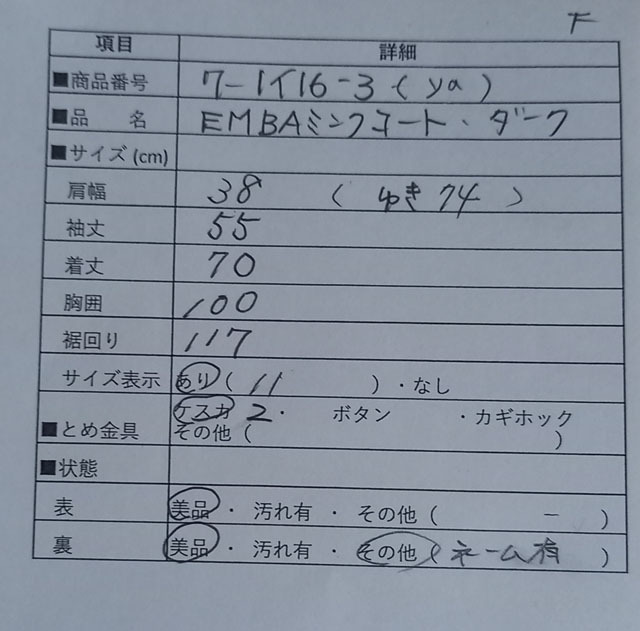 下
項目 詳細
■商品番号 7-1イ16-3 ( ya )
■品 名 EMBAミンクコート・ダーク
■サイズ (cm)
肩幅 38 ( ゆき 74 )
袖丈 55
着丈 70
胸囲 100
裾回り 117
サイズ表示 あり ( 11 ) ・なし
■とめ金具 ケスカ 2・ ボタン ・カギホック
その他 ( )
■状態
表 美品 ・ 汚れ有 ・ その他 ( - )
裏 美品 ・ 汚れ有 ・ その他 ( ネーム有 )